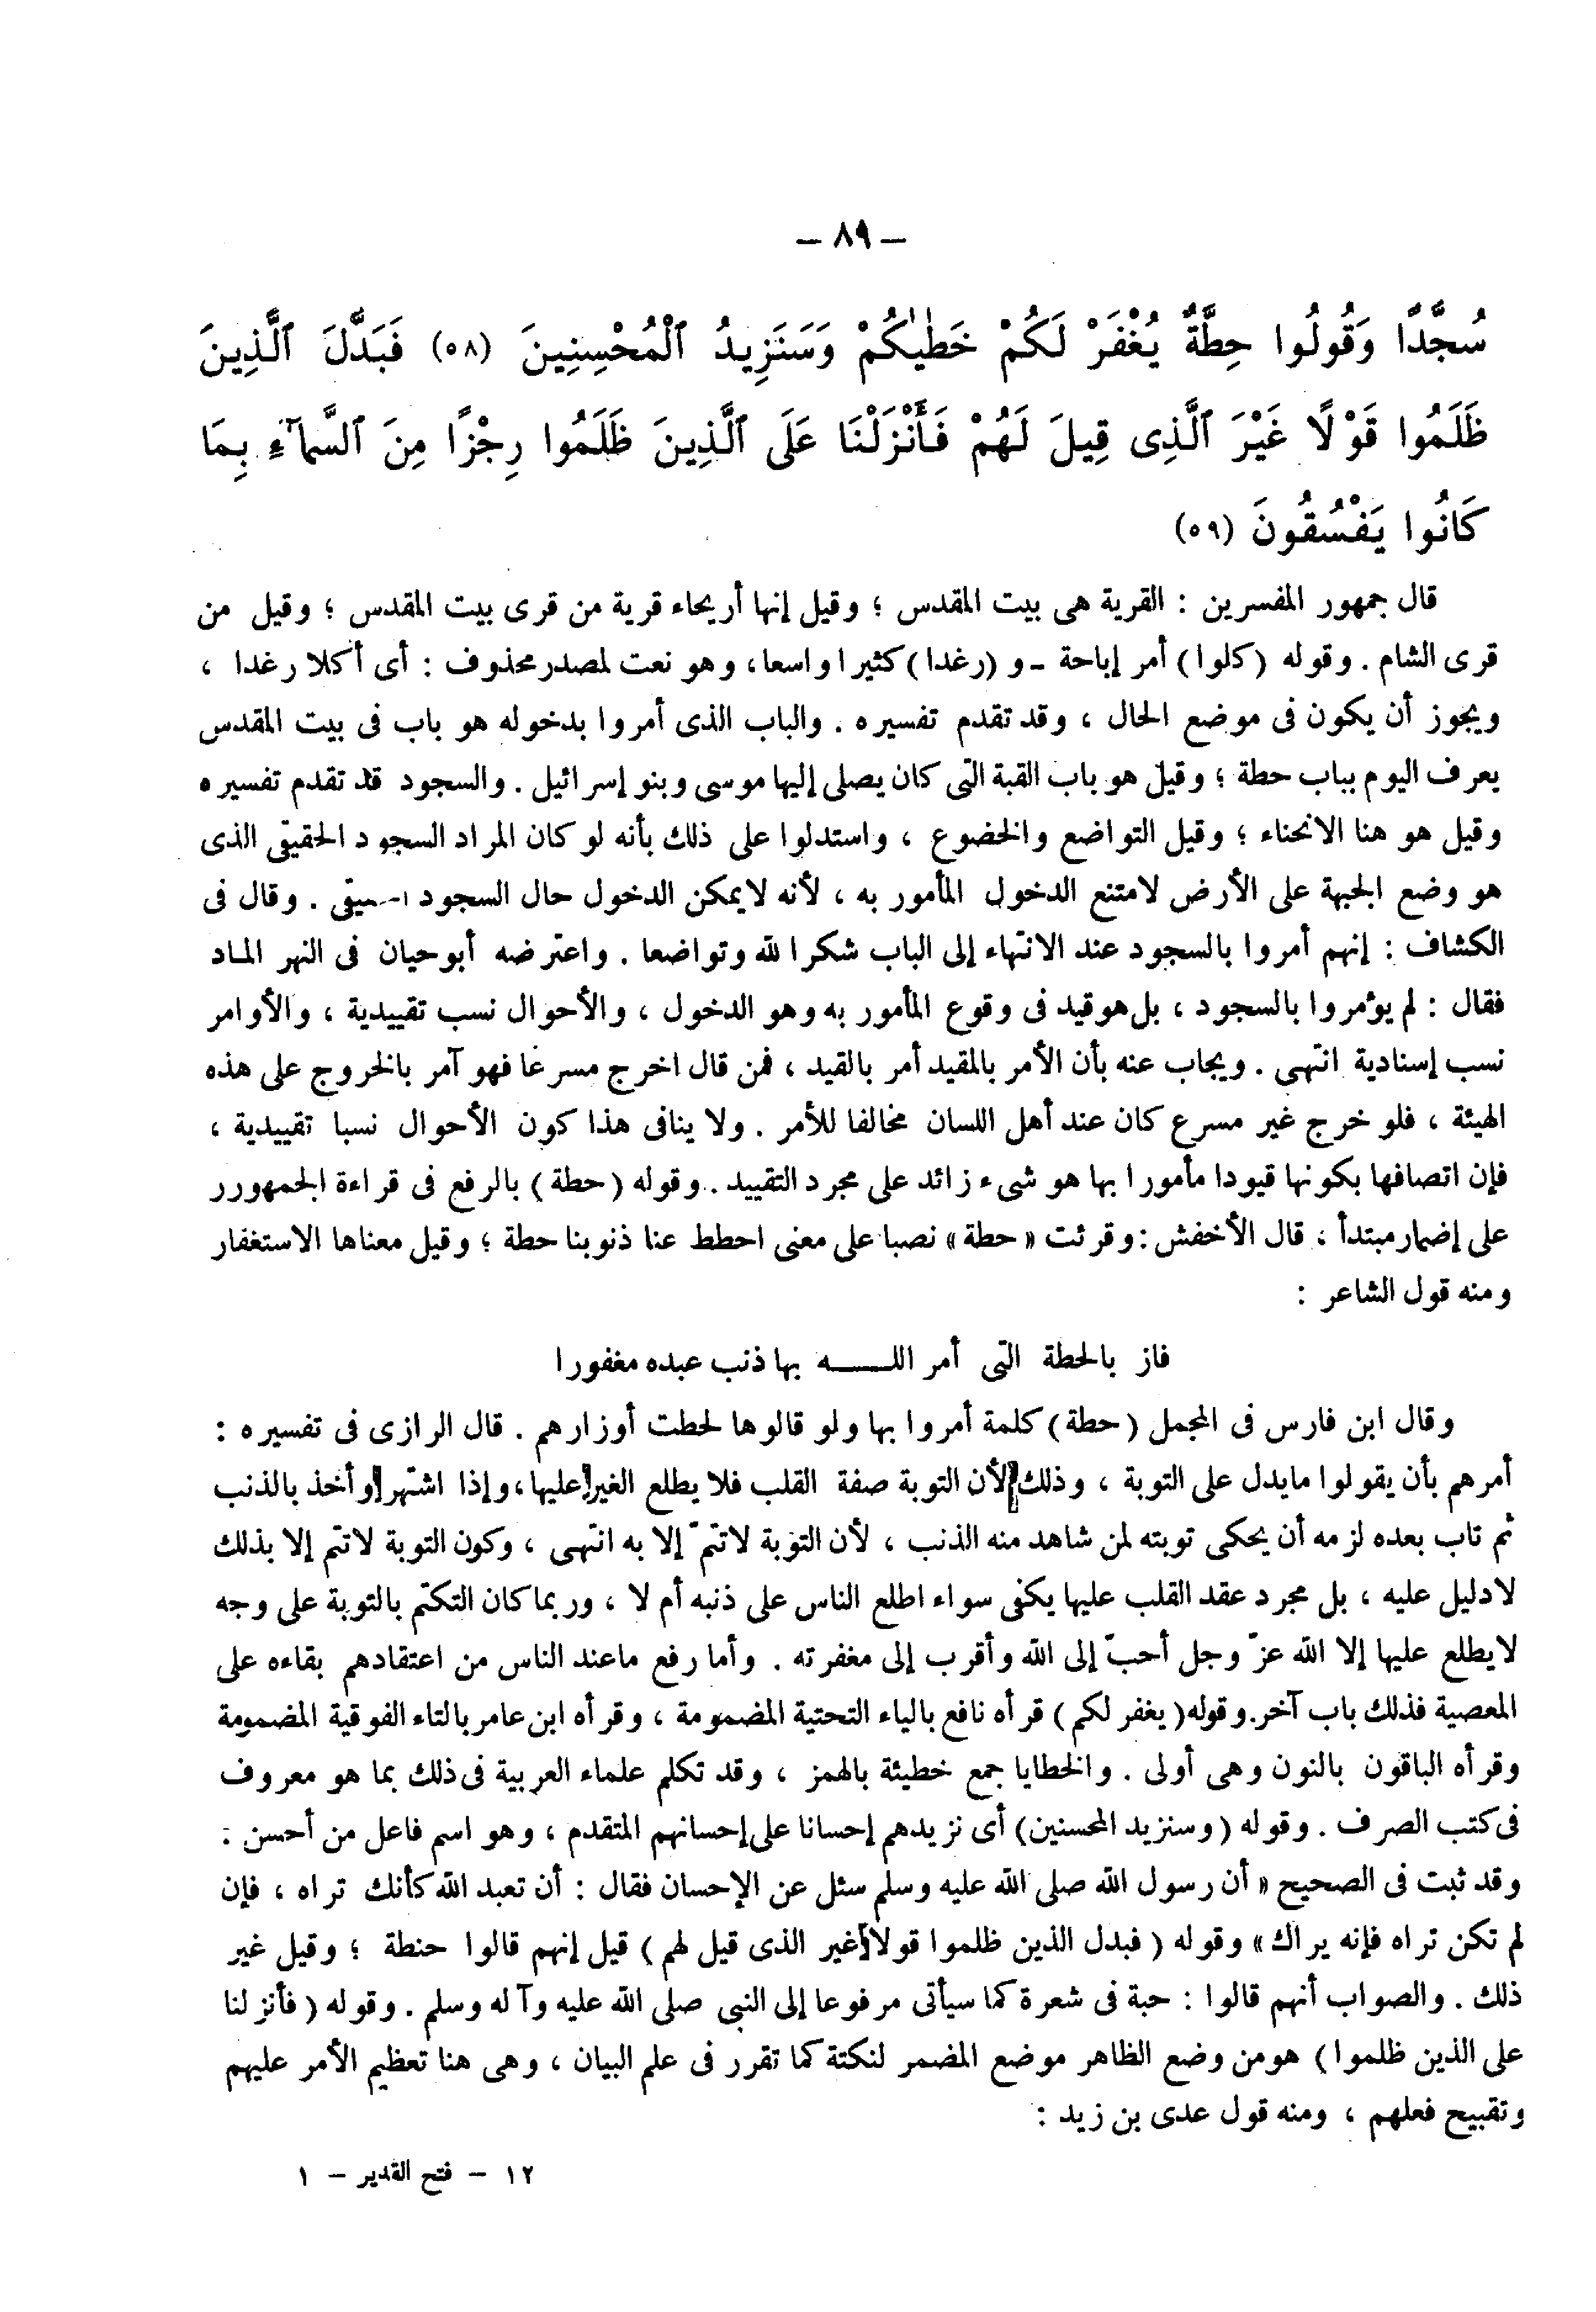 — ٨٩ —
سُجَّدًا وَقُولُوا حِطَّةٌ يُغْفَرْ لَكُمْ خَطَٰيَٰكُمْ وَسَنَزِيدُ ٱلْمُحْسِنِينَ (٥٨) فَبَدَّلَ ٱلَّذِينَ
ظَلَمُوا قَوْلًا غَيْرَ ٱلَّذِى قِيلَ لَهُمْ فَأَنْزَلْنَا عَلَى ٱلَّذِينَ ظَلَمُوا رِجْزًا مِنَ ٱلسَّمَآءِ بِمَا
كَانُوا يَفْسُقُونَ (٥٩)
قال جمهور المفسرين : القرية هى بيت المقدس ؛ وقيل إنها أريحاء قرية من قرى بيت المقدس ؛ وقيل من
قرى الشام . وقوله (كلوا) أمر إباحة - و (رغدا) كثيرا واسعا، وهو نعت لمصدر محذوف : أى أكلا رغدا ،
ويجوز أن يكون فى موضع الحال ، وقد تقدم تفسيره . والباب الذى أمروا بدخوله هو باب فى بيت المقدس
يعرف اليوم بباب حطة ؛ وقيل هو باب القبة التى كان يصلى إليها موسى وبنو إسرائيل . والسجود قد تقدم تفسيره
وقيل هو هنا الانحناء ؛ وقيل التواضع والخضوع ، واستدلوا على ذلك بأنه لو كان المراد السجود الحقيقى الذى
هو وضع الجبهة على الأرض لامتنع الدخول المأمور به ، لأنه لايمكن الدخول حال السجود . وقال فى
الكشاف : إنهم أمروا بالسجود عند الانتهاء إلى الباب شكرا لله وتواضعا . واعترضه أبوحيان فى النهر الماد
فقال : لم يؤمروا بالسجود ، بل هو قيد فى وقوع المأمور به وهو الدخول ، والأحوال نسب تقييدية ، والأوامر
نسب إسنادية انتهى . ويجاب عنه بأن الأمر بالمقيد أمر بالقيد ، فمن قال اخرج مسرعا فهو آمر بالخروج على هذه
الهيئة ، فلو خرج غير مسرع كان عند أهل اللسان مخالفا للأمر . ولا ينافى هذا كون الأحوال نسبا تقييدية ،
فإن اتصافها بكونها قيودا مأمورا بها هو شىء زائد على مجرد التقييد . وقوله (حطة) بالرفع فى قراءة الجمهورر
على إضمار مبتدأ ، قال الأخفش : وقرئت « حطة » نصبا على معنى احطط عنا ذنوبنا حطة ؛ وقيل معناها الاستغفار
ومنه قول الشاعر :
فاز بالحطة التى أمر اللــــه بها ذنب عبده مغفورا
وقال ابن فارس فى المجمل (حطة) كلمة أمروا بها ولو قالوها لحطت أوزارهم . قال الرازى فى تفسيره :
أمرهم بأن يقولوا مايدل على التوبة ، وذلك لأن التوبة صفة القلب فلا يطلع الغير عليها، وإذا اشتهر وأخذ بالذنب
ثم تاب بعده لزمه أن يحكى توبته لمن شاهد منه الذنب ، لأن التوبة لاتتمّ إلا به انتهى ، وكون التوبة لاتتم إلا بذلك
لادليل عليه ، بل مجرد عقد القلب عليها يكفى سواء اطلع الناس على ذنبه أم لا ، وربما كان التكتم بالتوبة على وجه
لايطلع عليها إلا الله عزّ وجل أحبّ إلى الله وأقرب إلى مغفرته . وأما رفع ماعند الناس من اعتقادهم بقاءه على
المعصية فذلك باب آخر. وقوله (يغفر لكم) قرأه نافع بالياء التحتية المضمومة ، وقرأه ابن عامر بالتاء الفوقية المضمومة
وقرأه الباقون بالنون وهى أولى . والخطايا جمع خطيئة بالهمز ، وقد تكلم علماء العربية فى ذلك بما هو معروف
فى كتب الصرف . وقوله (وسنزيد المحسنين) أى نزيدهم إحسانا على إحسانهم المتقدم ، وهو اسم فاعل من أحسن :
وقد ثبت فى الصحيح « أن رسول الله صلى الله عليه وسلم سئل عن الإحسان فقال : أن تعبد الله كأنك تراه ، فإن
لم تكن تراه فإنه يراك » وقوله ( فبدل الذين ظلموا قولا غير الذى قيل لهم ) قيل إنهم قالوا حنطة ؛ وقيل غير
ذلك . والصواب أنهم قالوا : حبة فى شعرة كما سيأتى مرفوعا إلى النبى صلى الله عليه وآله وسلم . وقوله ( فأنزلنا
على الذين ظلموا ) هو من وضع الظاهر موضع المضمر لنكتة كما تقرر فى علم البيان ، وهى هنا تعظيم الأمر عليهم
وتقبيح فعلهم ، ومنه قول عدى بن زيد :
١٢ - فتح القدير - ١